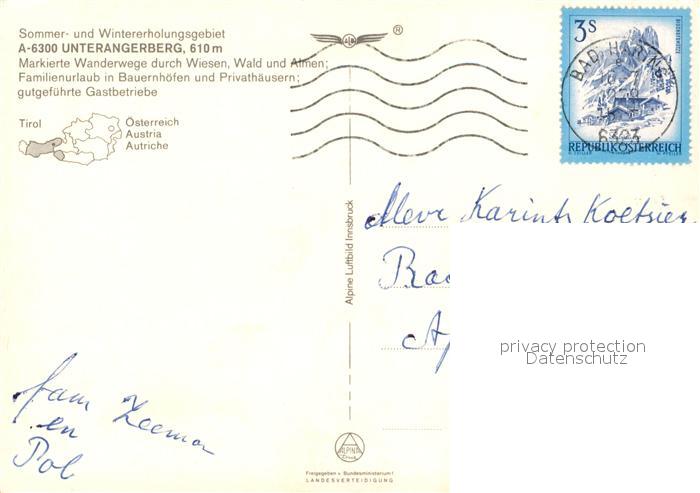 Sommer- und Wintererholungsgebiet
A-6300 UNTERANGERBERG, 610 m
Markierte Wanderwege durch Wiesen, Wald und Almen;
Familienurlaub in Bauernhöfen und Privathäusern;
gutgeführte Gastbetriebe
Tirol
Österreich
Austria
Autriche
®
3S
BAD HÄRING
6323
REPUBLIK ÖSTERREICH
Alpine Luftbild Innsbruck
Mevr Karint Koetsier
privacy protection
Datenschutz
fam Zeeman
en
Pol
ALPINA
Druck
Freigegeben v. Bundesministerium f.
LANDESVERTEIDIGUNG